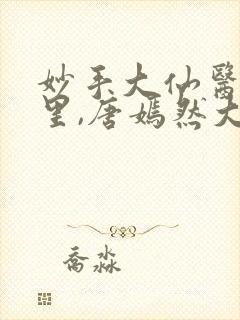 妙手大仙醫
里,唐嫣然大
喬淼